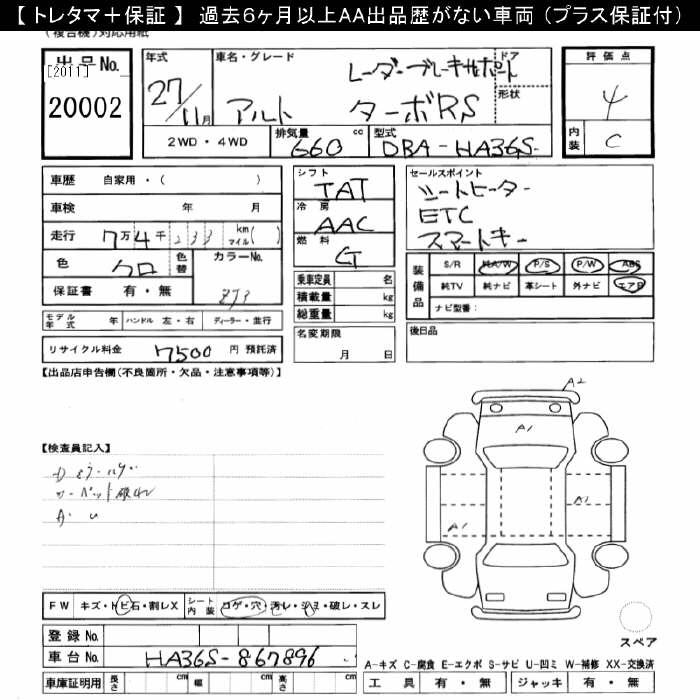 【 トレタマ＋保証 】 過去６ヶ月以上ＡＡ出品歴がない車両（プラス保証付）
(複合機)対応用紙
出品No.
[2011]
20002
年式
27/11月
車名・グレード
レーダーブレーキサポート
アルト ターボRS
ドア
形状
評価点
4
内装 C
2WD ・ 4WD
排気量 660 cc
型式 DBA-HA36S-
車歴 自家用 ・ ( )
車検 年 月
走行 7万4千233 km マイル( )
色 クロ
色替
カラーNo.
ZJ3
保証書 有 ・ 無
シフト TAT
冷房 AAC
燃料 G
乗車定員 名
積載量 kg
総重量 kg
セールスポイント
シートヒーター
ETC
スマートキー
装備品
S/R 純A/W P/S P/W ABS
純TV 純ナビ 革シート 外ナビ エアB
ナビ型番：
モデル年式 年 ハンドル 左・右 ディーラー・並行
リサイクル料金 7500 円 預託済
名変期限
月 日
後日品
【出品店申告欄(不良箇所・欠品・注意事項等)】
A2
A1
【検査員記入】
A1
A1
FW キズ・トビ石・割レX シート内装 コゲ・穴・汚レ・シミ・破レ・スレ
登録No.
車台No. HA36S-867896
車庫証明用 長さ cm 幅 cm 高さ cm
スペア
A-キズ C-腐食 E-エクボ S-サビ U-凹ミ W-補修 XX-交換済
工具 有・無 ジャッキ 有・無